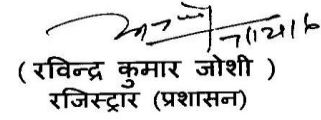 ( रविन्द्र कुमार जोशी )
रजिस्ट्रार (प्रशासन)